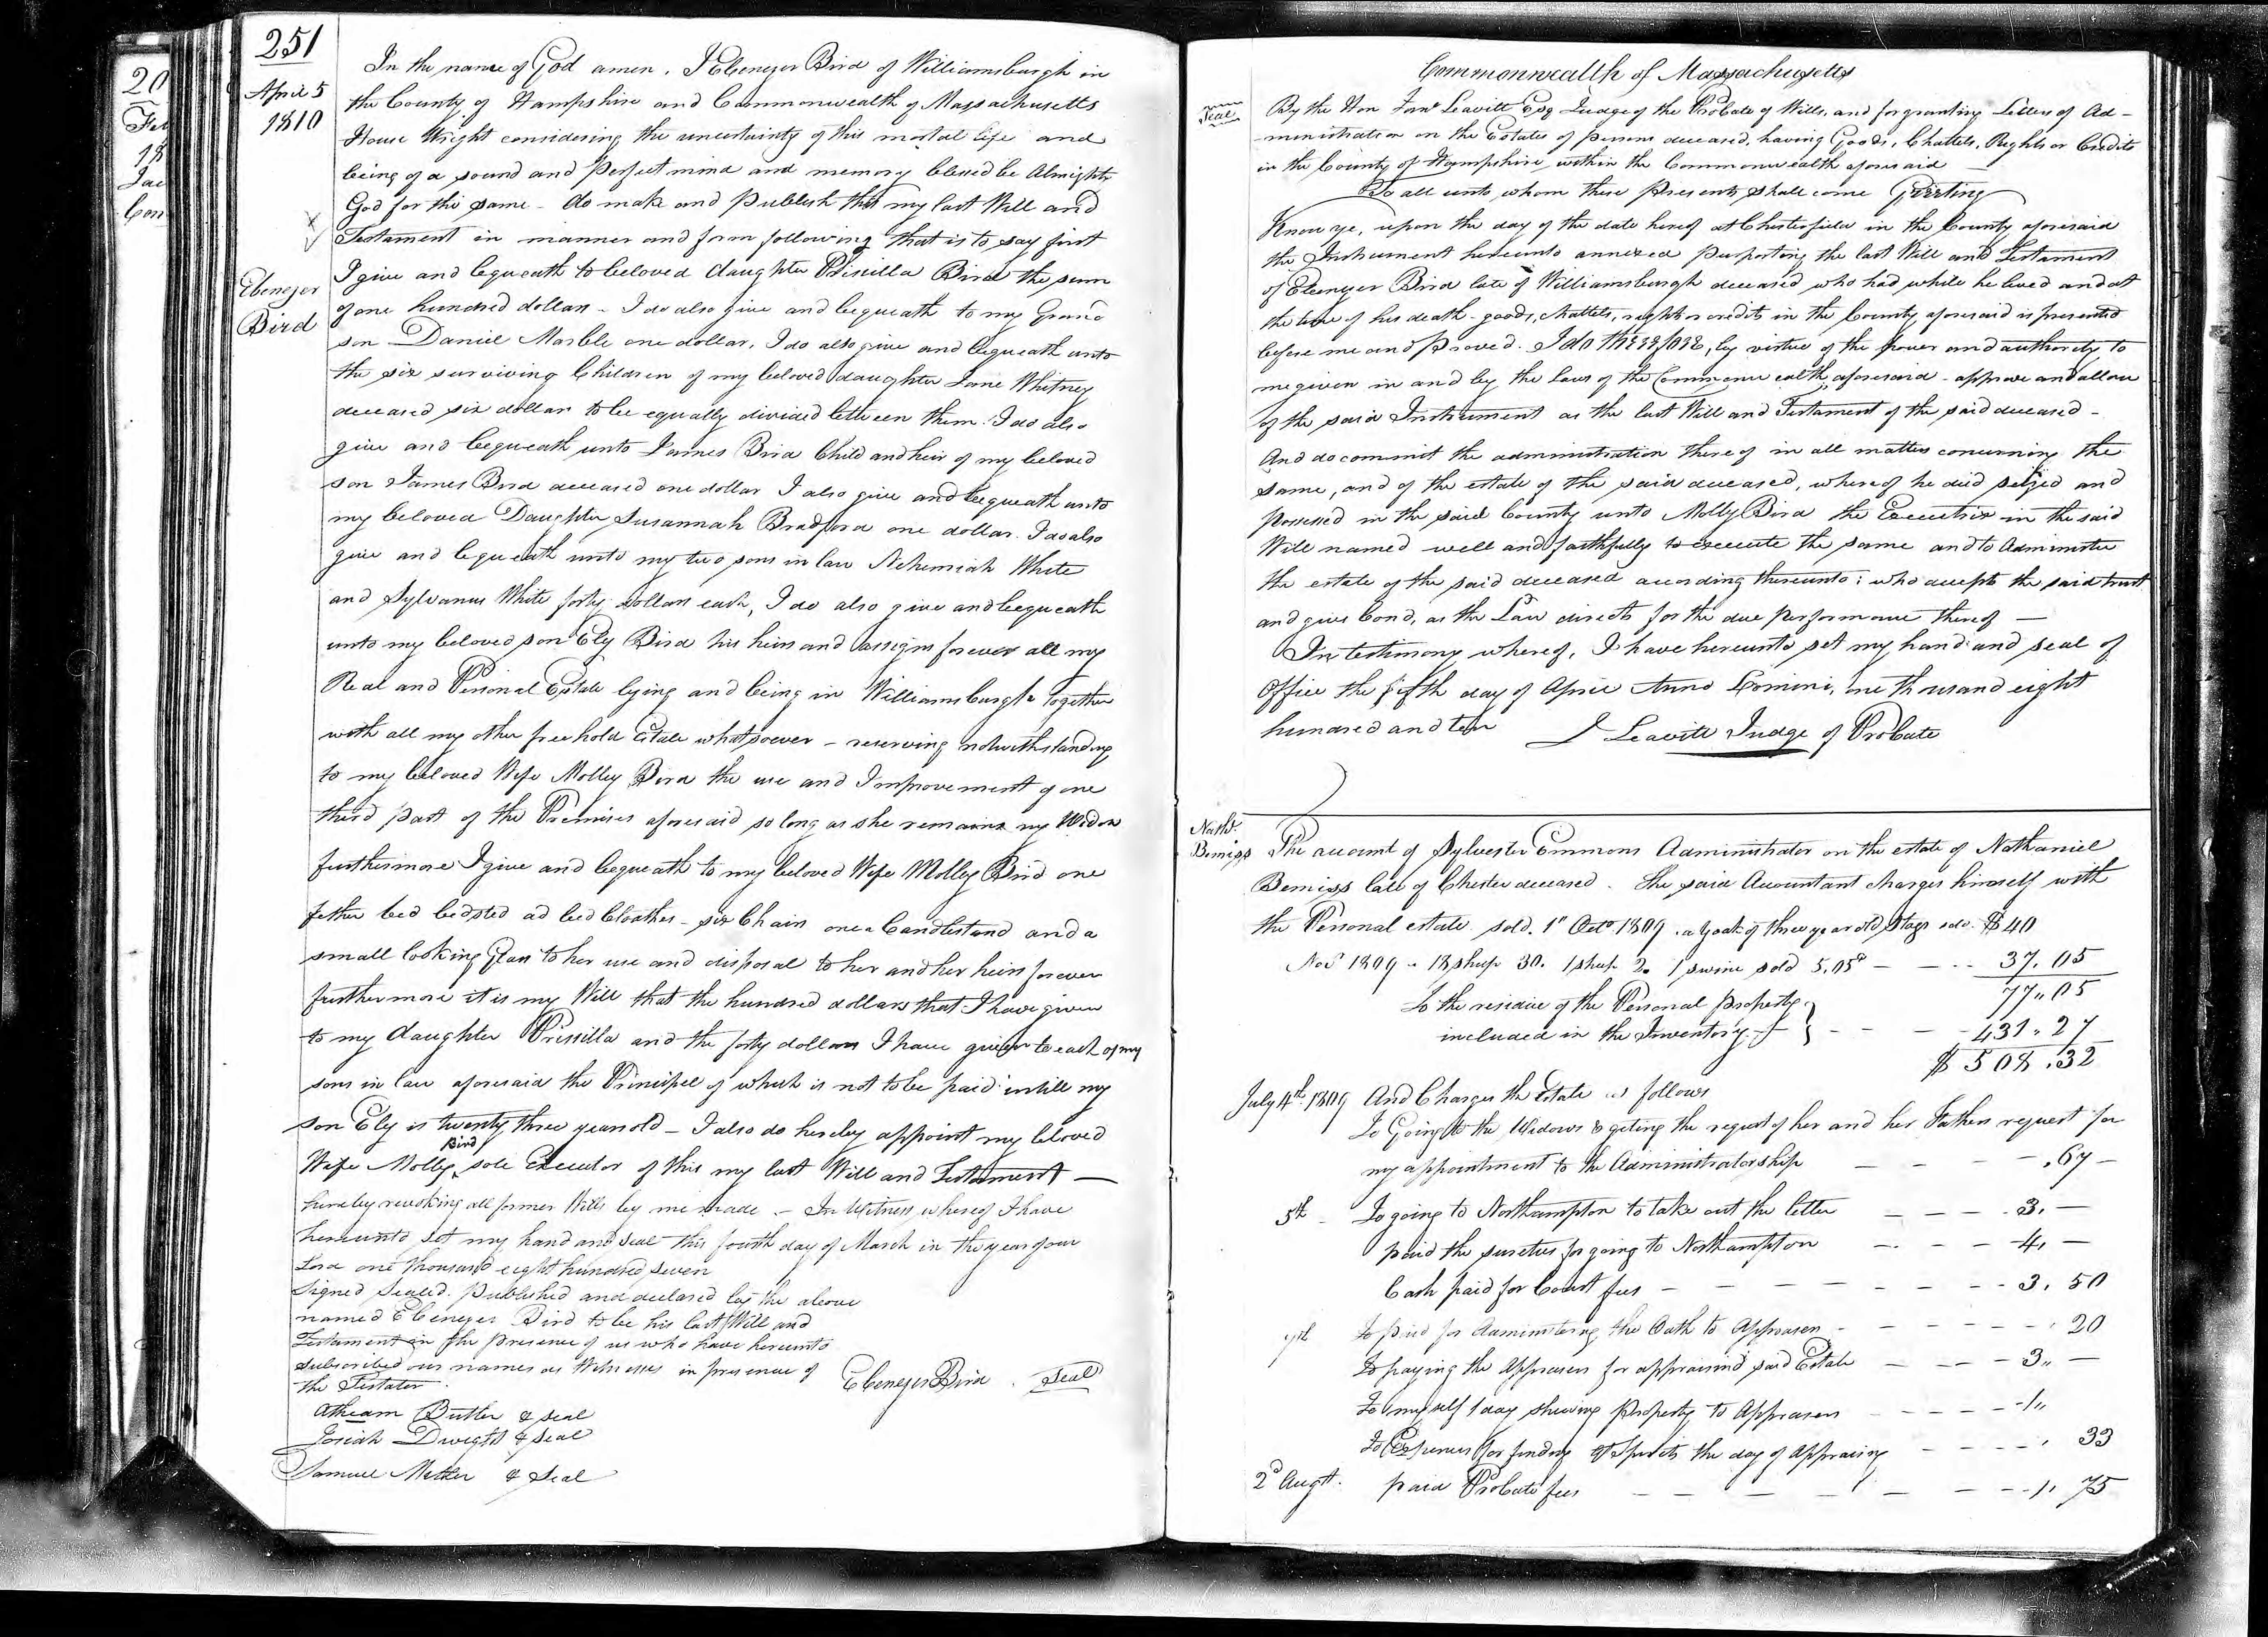 20
Feb
18
251
April 5
1810
Ebenezer
Bird
In the name of God amen. I Ebenezer Bird of Williamsburgh in
the County of Hampshire and Commonwealth of Massachusetts
House Wright considering the uncertainty of this mortal life and
being of a sound and perfect mind and memory blessed be Almighty
God for the same - do make and publish this my last Will and
Testament in manner and form following that is to say first
I give and bequeath to beloved daughter Prisilla Bird the sum
of one hundred dollars - I do also give and bequeath to my Grand
son Daniel Marble one dollar, I do also give and bequeath unto
the six surviving Children of my beloved daughter Jane Whitney
deceased six dollars to be equally divided between them. I do also
give and bequeath unto James Bird Child and heir of my beloved
son James Bird deceased one dollar I also give and bequeath unto
my beloved Daughter Susannah Bradford one dollar. I do also
give and bequeath unto my two sons in law Nehemiah White
and Sylvanus White forty dollars each, I do also give and bequeath
unto my beloved son Ely Bird his heirs and assigns forever all my
Real and Personal Estate lying and being in Williamsburgh together
with all my other freehold Estate whatsoever - reserving notwithstanding
to my beloved Wife Molley Bird the use and Improvement of one
third part of the Premises aforesaid so long as she remains my Widow
furthermore I give and bequeath to my beloved Wife Molley Bird one
fether bed bedsted ad bed Cloathes - six Chairs one a Candlestand and a
small looking Glass to her use and disposal to her and her heirs forever
furthermore it is my Will that the hundred dollars that I have given
to my daughter Prissilla and the forty dollars I have given to each of my
sons in law aforesaid the Principle of which is not to be paid untill my
son Ely is twenty three years old - I also do hereby appoint my beloved
Bird
Wife Molley sole Executor of this my last Will and Testament -
hereby revoking all former Wills by me made - In Witness whereof I have
hereunto set my hand and seal this fourth day of March in the year of our
Lord one thousand eight hundred seven
Signed Sealed. Published and declared by the above
named Ebenezer Bird to be his last Will and
Testament in the presence of us who have hereunto
subscribed our names as Witnesses in presence of
the Testator. Ebenezer Bird. Seal
Butler & seal
Josiah Dwight & seal
Samuel Mather & Seal
Commonwealth of Massachusetts
Seal
By the Hon Jonª Leavitt Esq Judge of the Probate of Wills, and for granting Letters of Ad-
ministration on the Estates of persons deceased, having Goods, Chattels, Rights or Credits
in the County of Hampshire within the Commonwealth aforesaid
To all unto whom these Presents shall come Greeting
Know ye, upon the day of the date hereof at Chesterfield in the County aforesaid
the Instrument hereunto annexed purporting the last Will and Testament
of Ebenezer Bird late of Williamsburgh deceased who had while he lived and at
the time of his death - goods, chattels, rights or credits in the County aforesaid is presented
before me and proved. I do therefore, by virtue of the power and authority to
me given in and by the Laws of the Commonwealth aforesaid - approve and allow
of the said Instrument as the last Will and Testament of the said deceased -
And do commit the administration thereof in all matters concerning the
same, and of the estate of the said deceased, whereof he died seized and
possessed in the said County unto Molly Bird the Executrix in the said
Will named well and faithfully to execute the same and to Administer
the estate of the said deceased according thereunto; who accepts the said trust
and gives bond, as the Law directs for the due performance thereof -
In testimony whereof, I have hereunto set my hand and seal of
Office the fifth day of April Anno Domini, one thousand eight
hundred and ten J Leavitt Judge of Probate
Nathl
Bemiss
The account of Sylvester Emmons Administrator on the estate of Nathaniel
Bemiss late of Chester deceased. The said Accountant charges himself with
the Personal estate sold. 1st Octo 1809. a yoak of three year old Stags sold. $40
Nov 1809 - 18 sheep 30. 1 sheep 2. 1 swine sold 5.05 - 37.05
77.05
To the residue of the Personal property
included in the Inventory } - 431.27
$508.32
July 4th 1809 And Charges the Estate as follows
To Going to the Widows & geting the request of her and her Fathers request for
my appointment to the Administratorship - .67 -
5th - To going to Northampton to take out the letter - 3. -
paid the sureties for going to Northampton - 4. -
Cash paid for Court fees - 3. 50
7th To paid for administering the Oath to Apprasers - 20
To paying the Apprasers for appraisind said Estate - 3 -
To myself 1 day shewing property to Apprasers - 1
To Expences for finding of Spirits the day of Appraising - 33
2d Augt. paid Probate fees - 1. 75